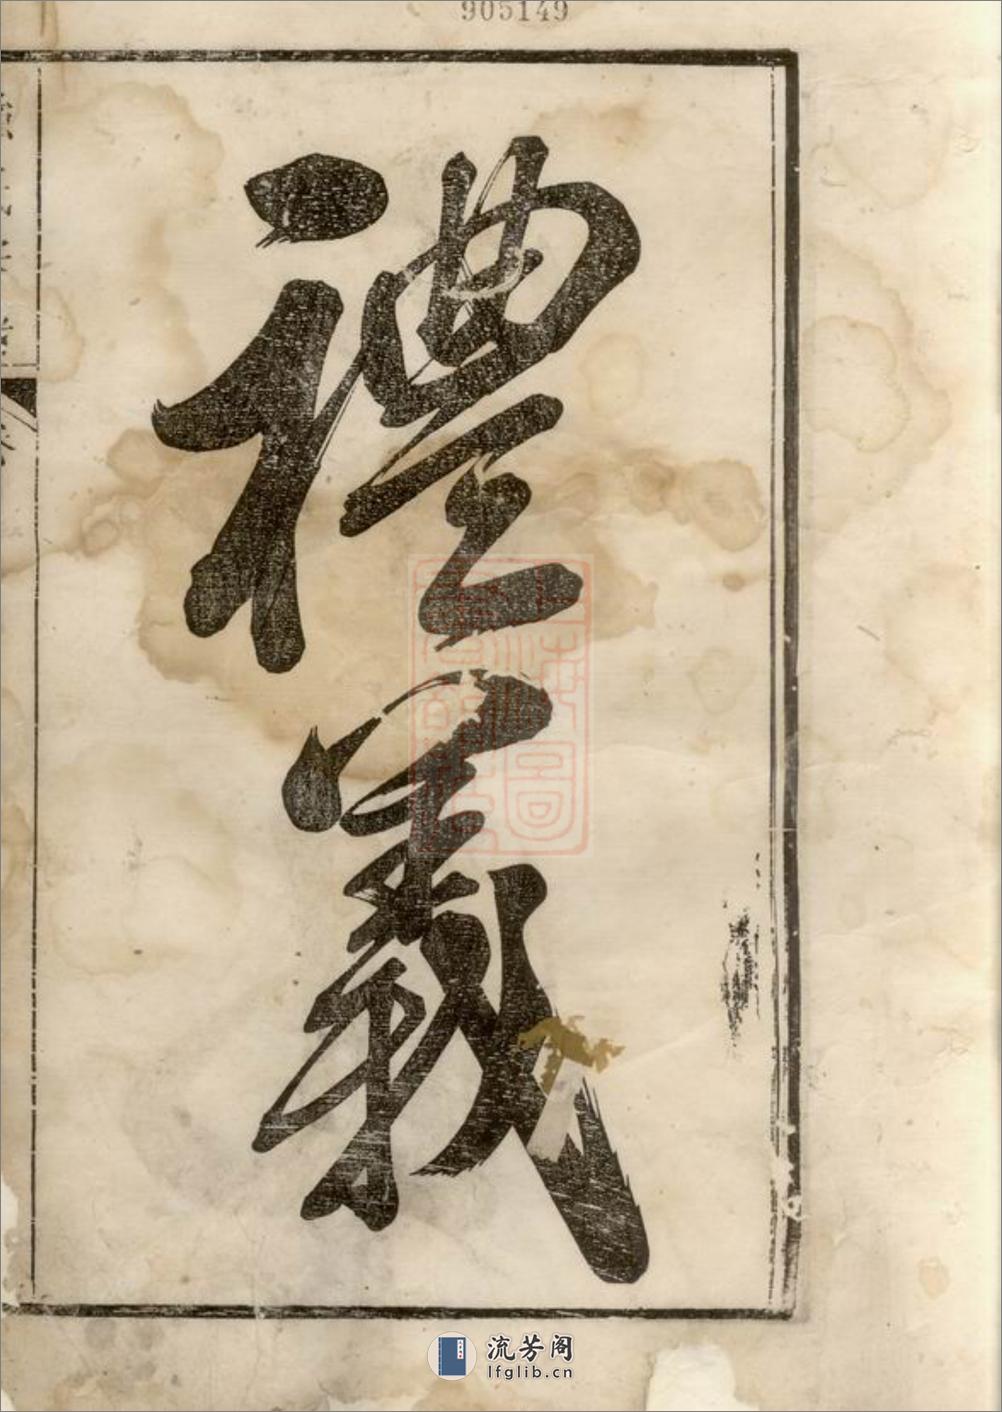 905149
禮義
流芳阁
lfglib.cn